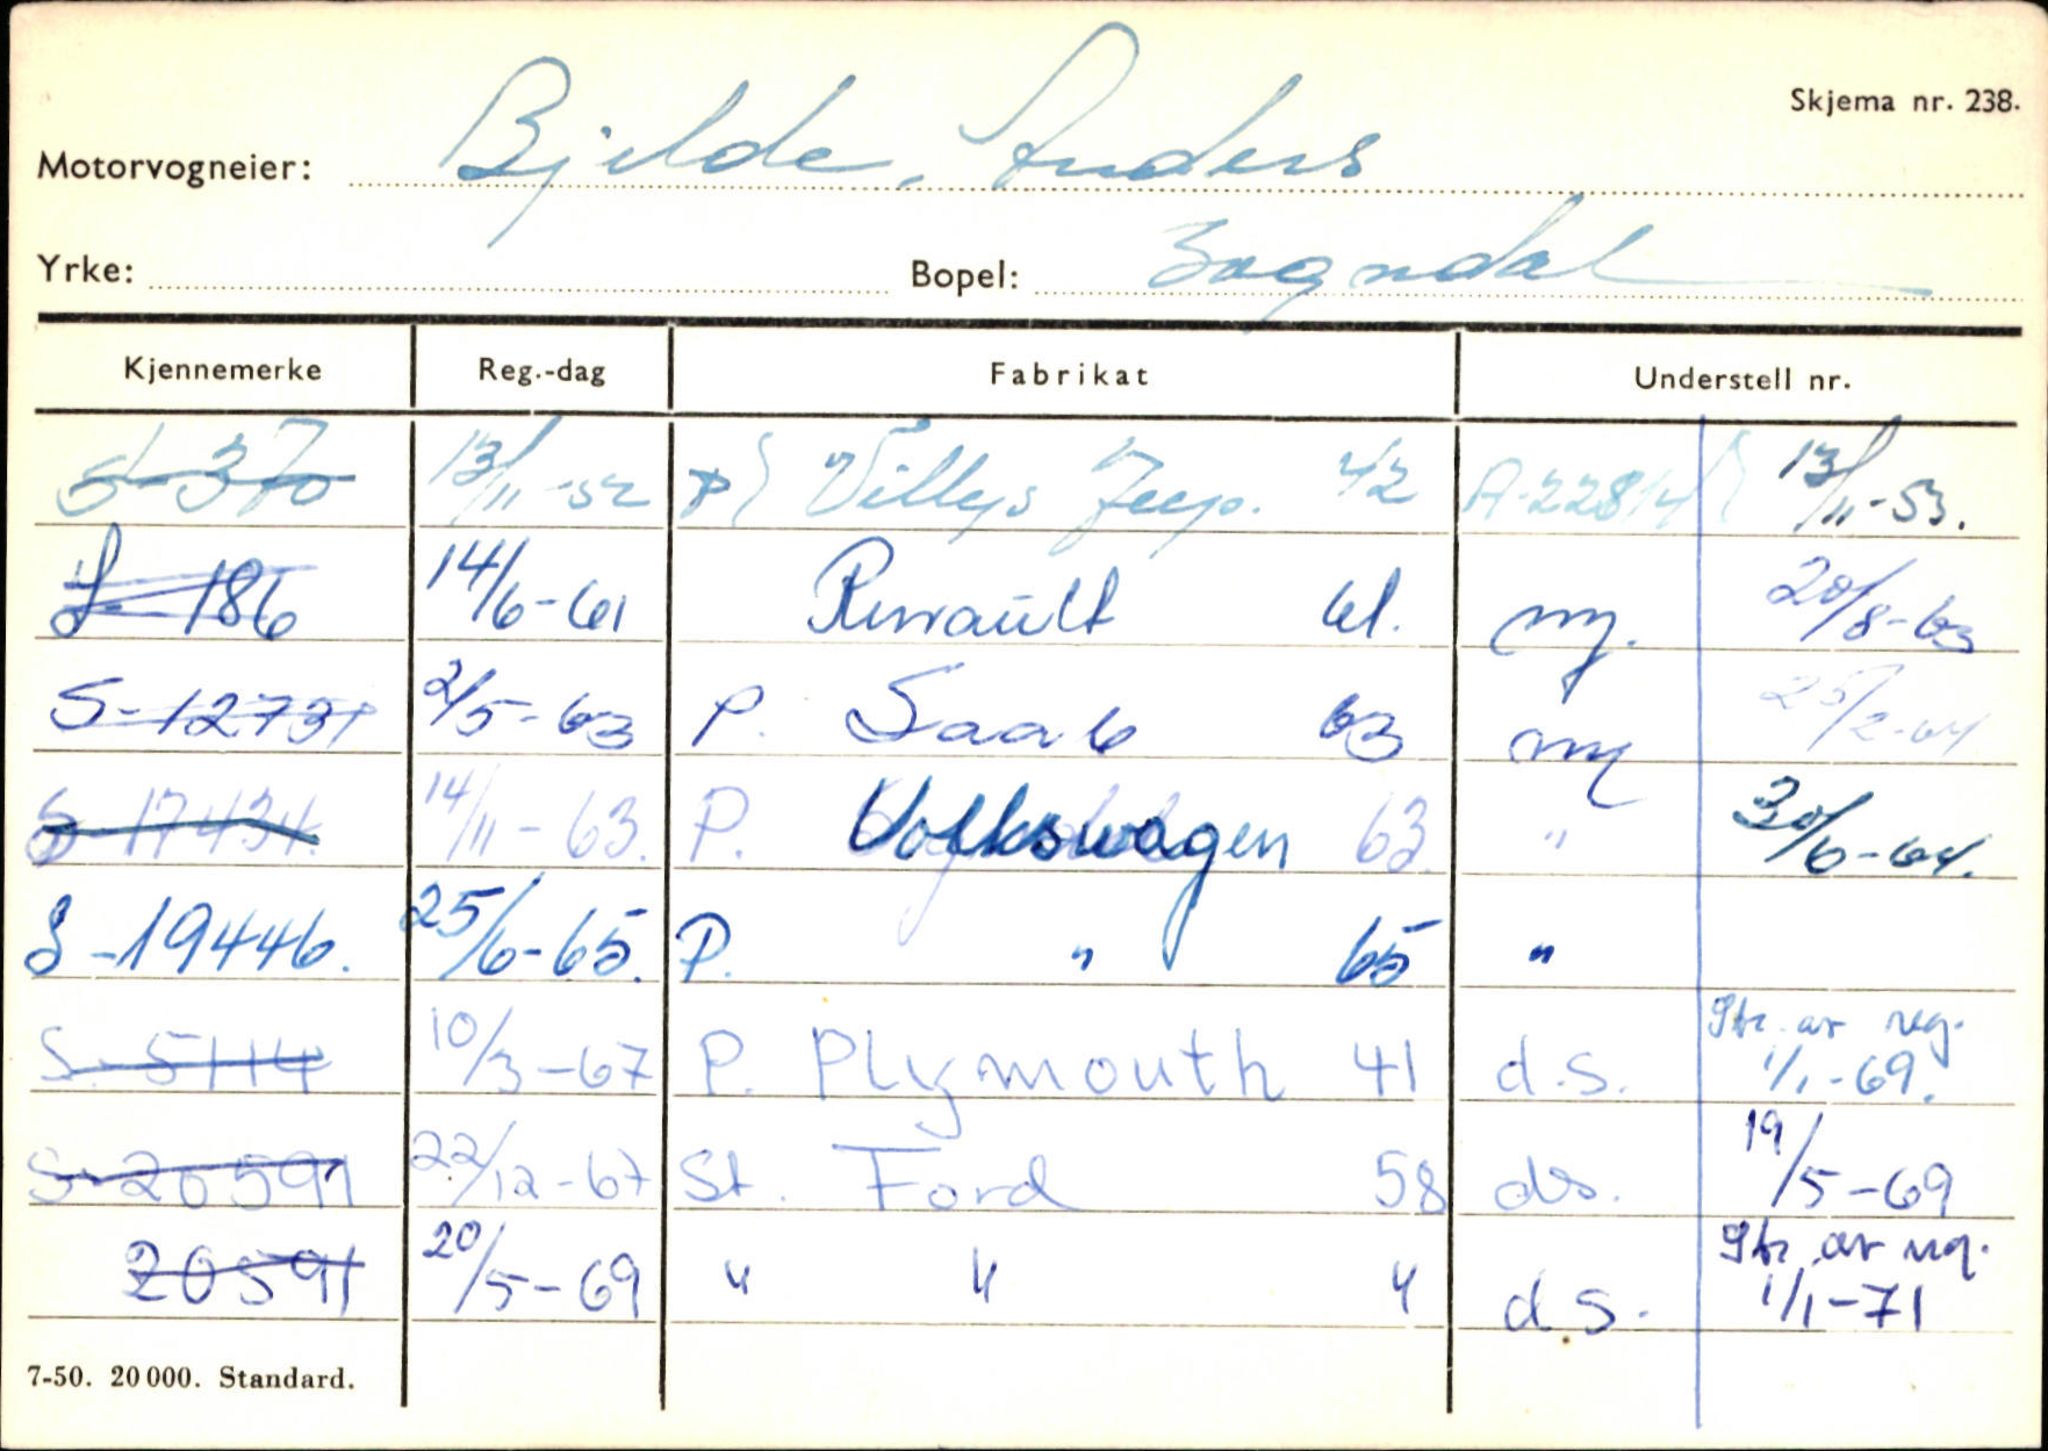 Skjema nr. 238.
Motorvogneier: Bjelde, Anders
Yrke: Bopel: Sogndal
Kjennemerke Reg.-dag Fabrikat Understell nr.
S-370 13/11-52 Willys Jeep. 42 A-22814 13/11-53.
S-186 14/6-61 Renault 61. ny. 20/8-63
S-12731 2/5-63 P. Saab 63 ny 25/2-64
S-17434. 14/11-63. P. Volkswagen 63. " 30/6-64.
S-19446. 25/6-65. P. " 65 "
S-5114 10/3-67 P. Plymouth 41 d.s. Str. av reg. 1/1-69.
S-20591 22/12-67 St. Ford 58 ds. 19/5-69
20591 20/5-69 " " " d.s. Str. av reg. 1/1-71
7-50. 20 000. Standard.